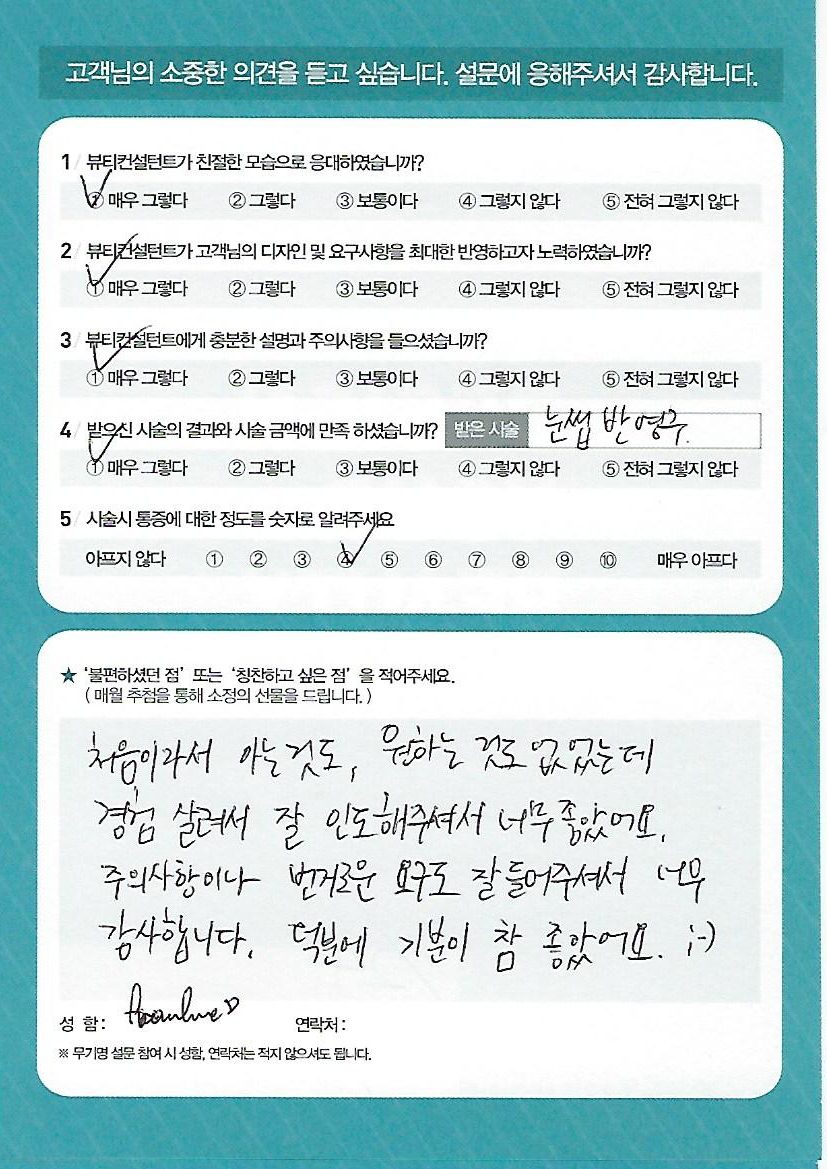 고객님의 소중한 의견을 듣고 싶습니다. 설문에 응해주셔서 감사합니다.
1 / 뷰티컨설턴트가 친절한 모습으로 응대하였습니까?
① 매우 그렇다 ② 그렇다 ③ 보통이다 ④ 그렇지 않다 ⑤ 전혀 그렇지 않다
2 / 뷰티컨설턴트가 고객님의 디자인 및 요구사항을 최대한 반영하고자 노력하였습니까?
① 매우 그렇다 ② 그렇다 ③ 보통이다 ④ 그렇지 않다 ⑤ 전혀 그렇지 않다
3 / 뷰티컨설턴트에게 충분한 설명과 주의사항을 들으셨습니까?
① 매우 그렇다 ② 그렇다 ③ 보통이다 ④ 그렇지 않다 ⑤ 전혀 그렇지 않다
4 / 받으신 시술의 결과와 시술 금액에 만족 하셨습니까? 받은 시술 눈썹 반영구.
① 매우 그렇다 ② 그렇다 ③ 보통이다 ④ 그렇지 않다 ⑤ 전혀 그렇지 않다
5 / 시술시 통증에 대한 정도를 숫자로 알려주세요
아프지 않다 ① ② ③ ④ ⑤ ⑥ ⑦ ⑧ ⑨ ⑩ 매우 아프다
★ '불편하셨던 점' 또는 '칭찬하고 싶은 점' 을 적어주세요.
( 매월 추첨을 통해 소정의 선물을 드립니다. )
처음이라서 아는것도, 원하는 것도 없었는데
경험 살려서 잘 인도해주셔서 너무좋았어요.
주의사항이나 번거로운 요구도 잘들어주셔서 너무
감사합니다. 덕분에 기분이 참 좋았어요. ;-)
성 함 :
연락처 :
※ 무기명 설문 참여 시 성함, 연락처는 적지 않으셔도 됩니다.